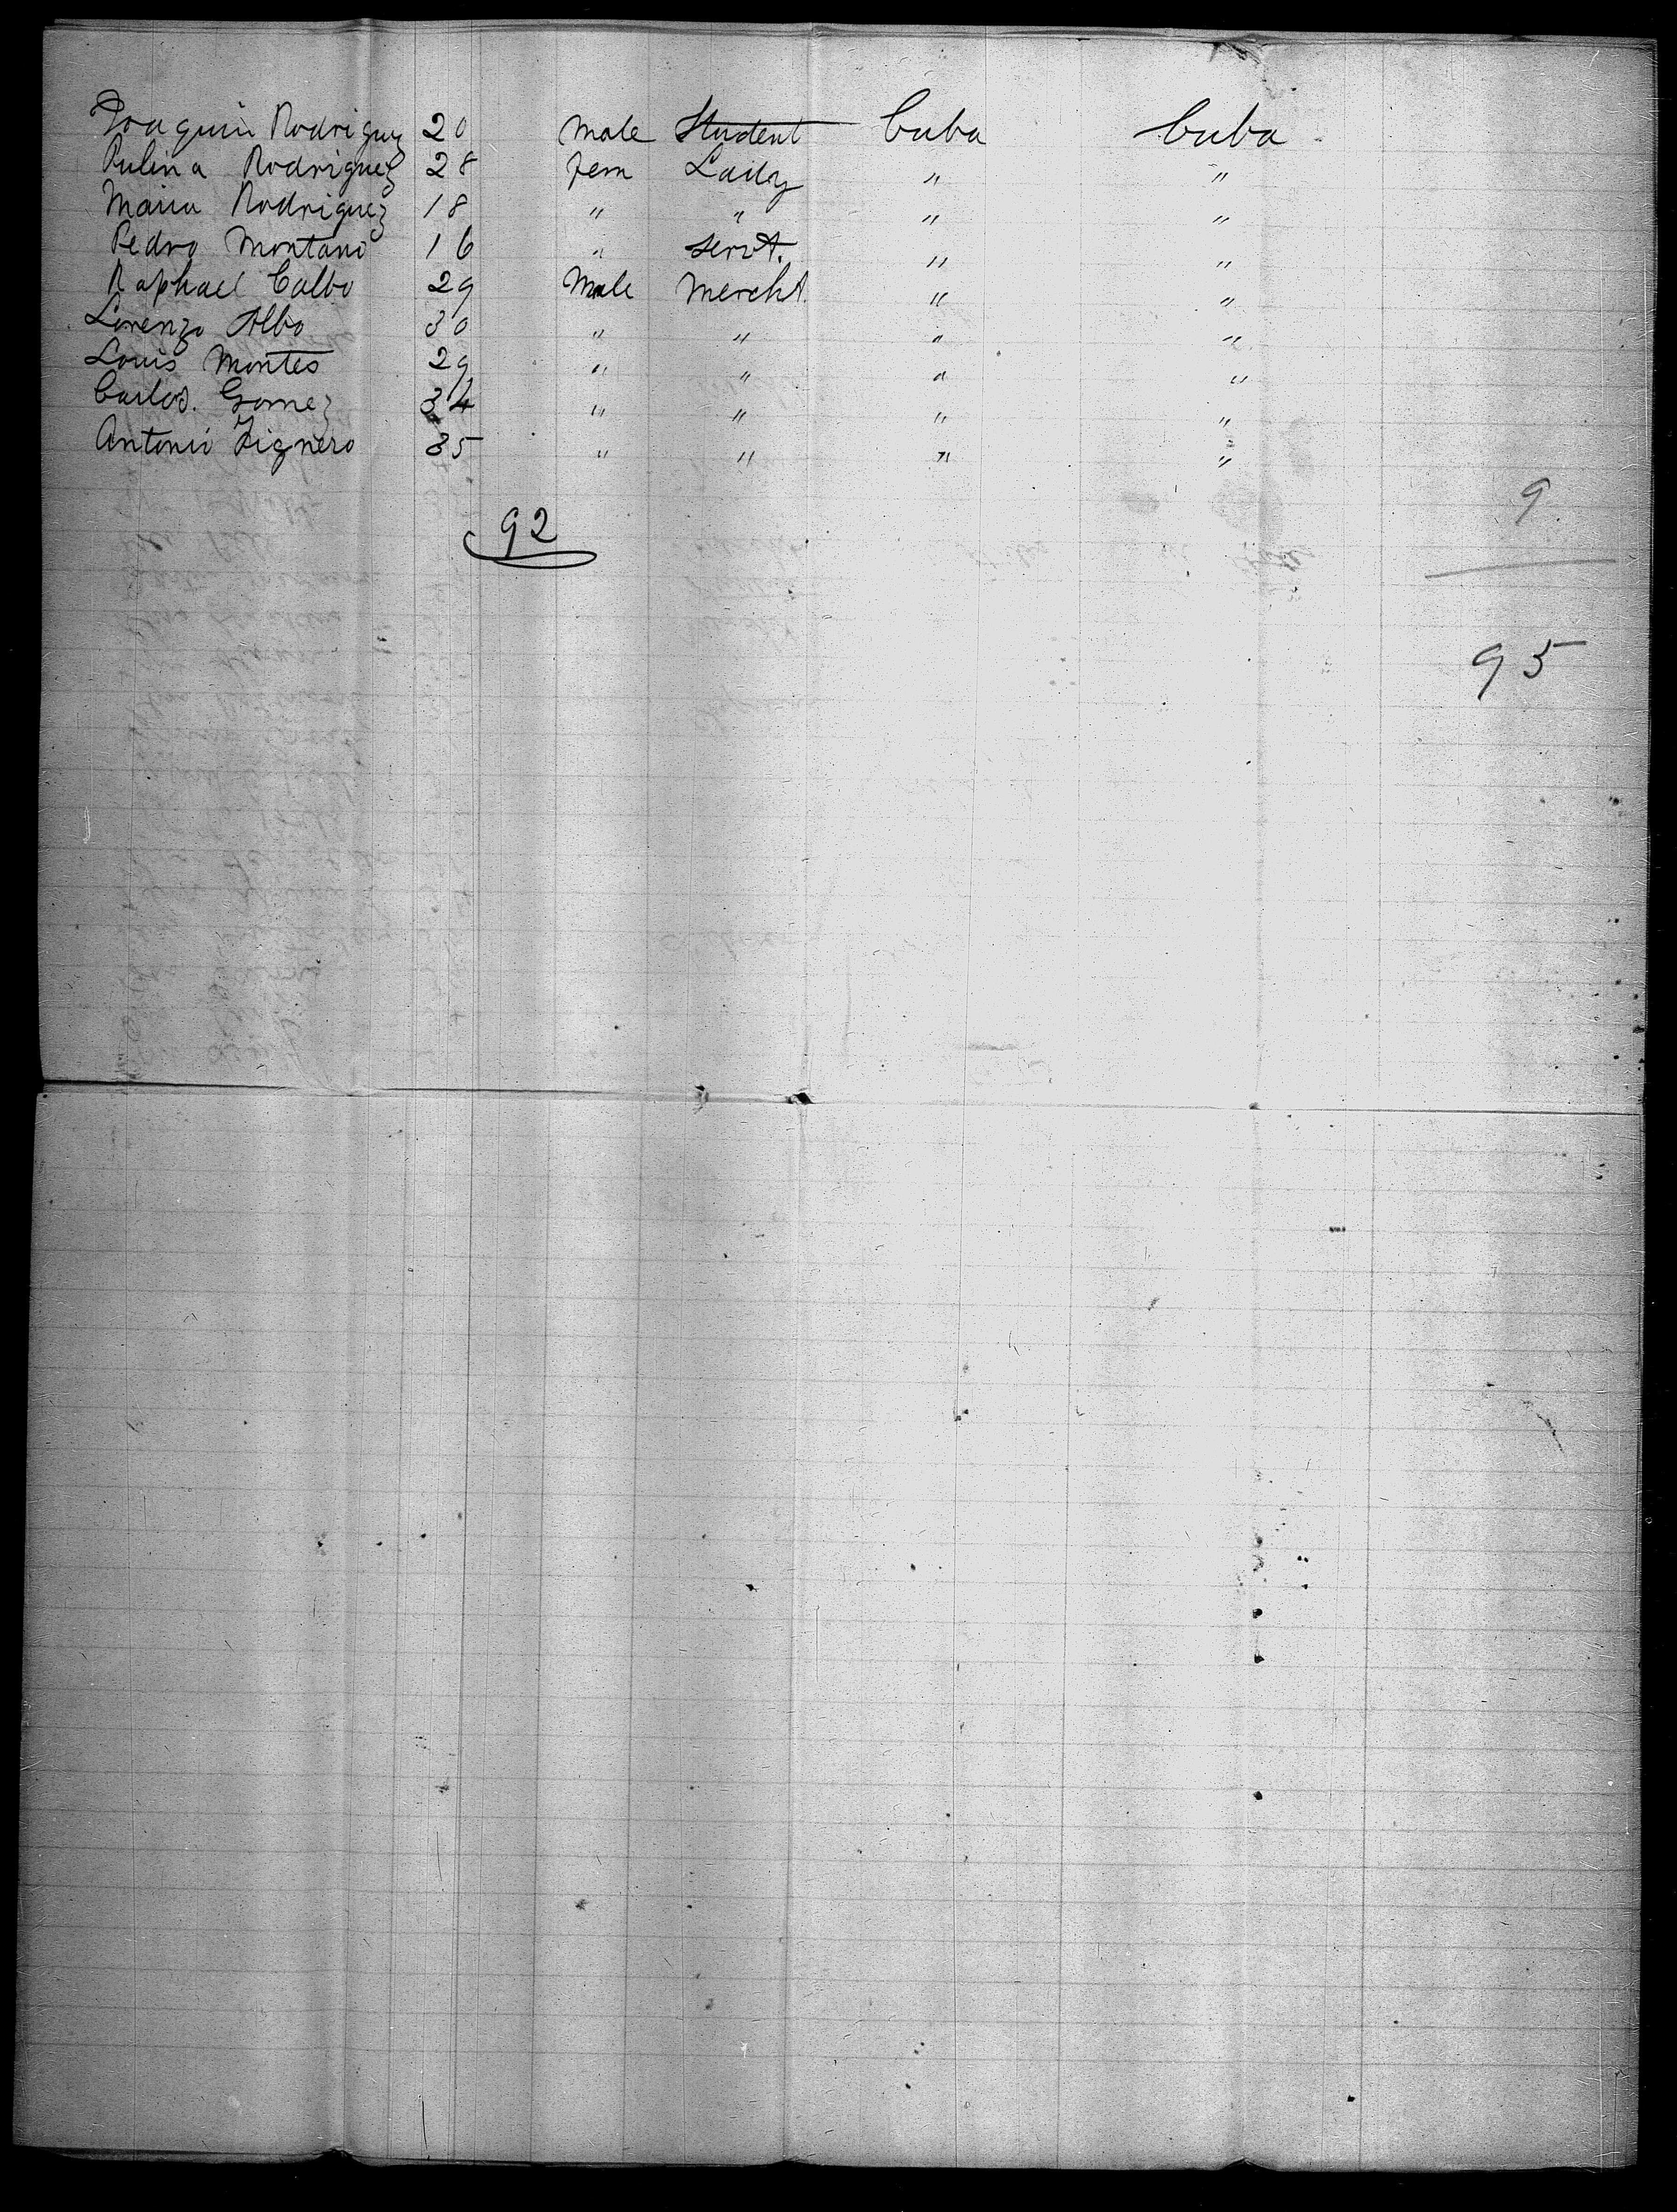 Joaquin Rodriguez 20 Male Student Cuba Cuba
Pulina Rodriguez 28 Fem Lady " "
Maria Rodriguez 18 " " " "
Pedro Montano 16 " Servt. " "
Raphael Calbo 29 Male Mercht. " "
Lorenzo Albo 30 " " " "
Louis Montes 29 " " " "
Carlos. Gomez 34 " " " "
Antonio Fignero 35 " " " "
9
92
95